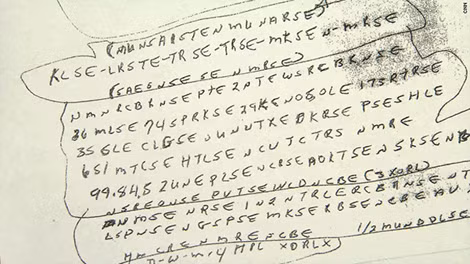 (MUNSARSTEN MU NARSE)
KLSE-LRSTE-TRSE-TRSE-MKSEN-MRSE
(SAE6NSE SE N MRSE)
NMNRCBRNSE PTE2PTEWSRCBRNSE
36 MLSE 74 SPRKSE 29 KENOSOLE 173 RTRSE
35 GLE CLGSE UNUTXE BKRSE PSESHLE
651 MTCSE HTLSE NCUTCTRS NMRE
99.84.5 ZUNE PLRSE NCRSE AOLTSE NSKSE N
NSREONSE PVTSE WLD NCBE (3 XORL)
NRSE IN2NTRLERCBRNSE NT
LSPNSE NGSPSE MKSERBSE NCBE AU
NMRENCBE 1/2 MUNDDLSE
D-W-M-4 MPL XDRLX